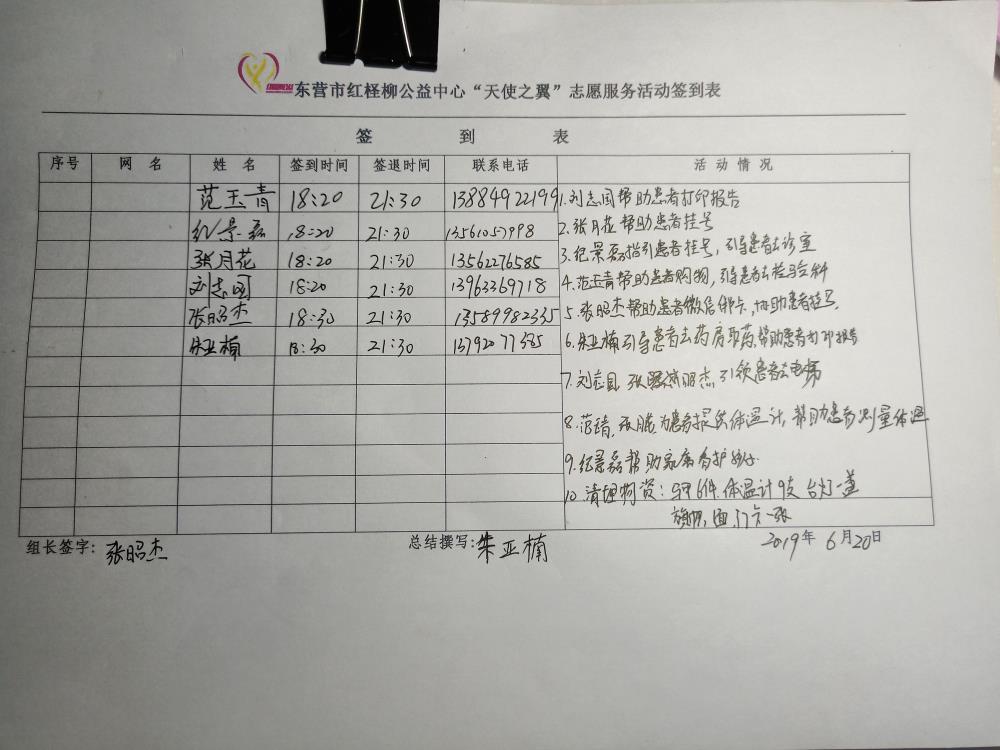 东营市红柽柳公益中心“天使之翼”志愿服务活动签到表
签 到 表
序号 网 名 姓 名 签到时间 签退时间 联系电话 活 动 情 况
范玉青 18:20 21:30 13884922199
纪景磊 18:20 21:30
张月花 18:20 21:30 13562276585
刘志国 18:20 21:30 13963369718
张昭杰 18:30 21:30 13589982335
朱亚楠 18:30 21:30
1.刘志国帮助患者打印报告
2.张月花帮助患者挂号
3.纪景磊指引患者挂号,引导患者去诊室
4.范玉青帮助患者购物,引导患者去检验科
5.张昭杰帮助患者微信办卡,协助患者挂号
6.朱亚楠引导患者去药房取药,帮助患者打印报告
7.刘志国、张昭杰,引领患者去电梯
8.为患者提供体温计,帮助患者测量体温
9.纪景磊帮助家属看护
10.清理物资:马甲6件.体温计9支 台灯一盏
门卡一张
组长签字: 张昭杰 总结撰写: 朱亚楠 2019年 6月20日